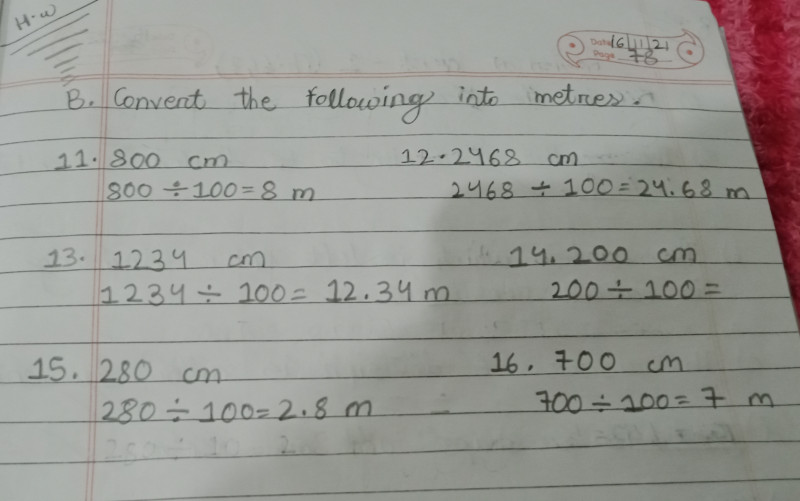 H.W
Date 16/11/21
Page 78
B. Convert the following into metres.
11. 800 cm
800 ÷ 100 = 8 m
12. 2468 cm
2468 ÷ 100 = 24.68 m
13. 1234 cm
1234 ÷ 100 = 12.34 m
14. 200 cm
200 ÷ 100 =
15. 280 cm
280 ÷ 100 = 2.8 m
16. 700 cm
700 ÷ 100 = 7 m